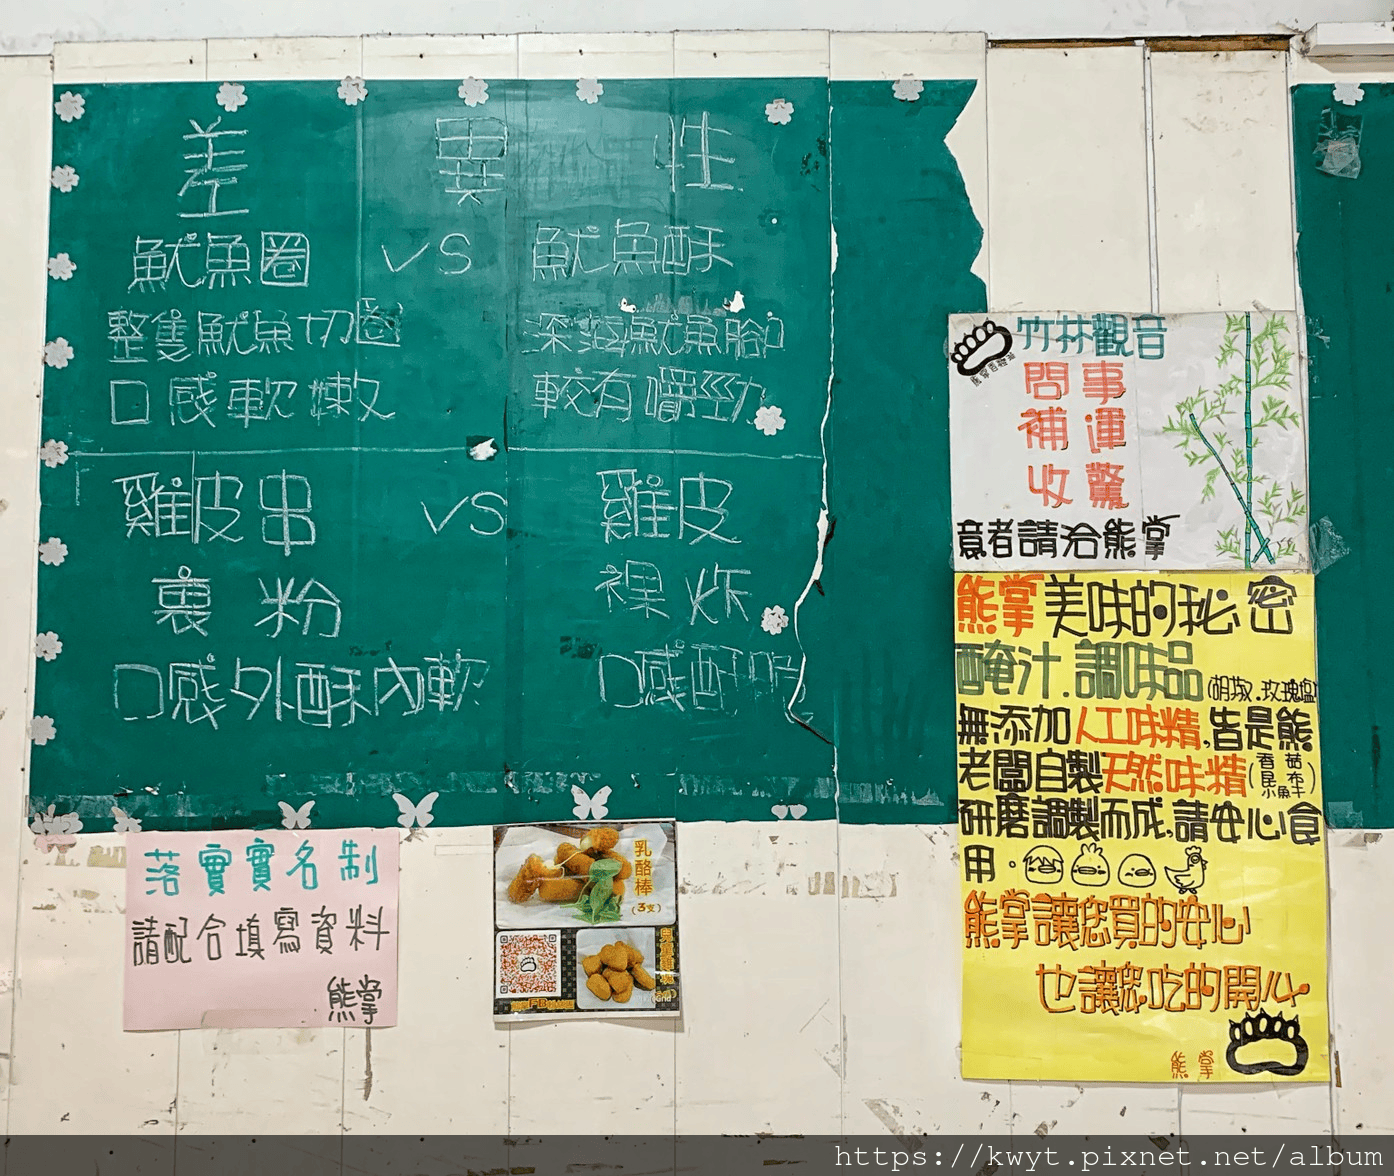 差異性
魷魚圈 VS 魷魚酥
整隻魷魚切圈 深海魷魚腳
口感軟嫩 較有嚼勁
雞皮串 VS 雞皮
裹粉 裸炸
口感外酥內軟 口感酥脆
竹林觀音
問事
補運
收驚
意者請洽熊掌
熊掌美味的秘密
醃汁.調味品(胡椒.玫瑰塩)
無添加人工味精,皆是熊
老闆自製天然味精(香菇昆布小魚干)
研磨調製而成,請安心食
用.
熊掌讓您買的安心
也讓您吃的開心
熊掌
落實實名制
請配合填寫資料
熊掌
乳酪棒
(3支)
https://kwyt.pixnet.net/album